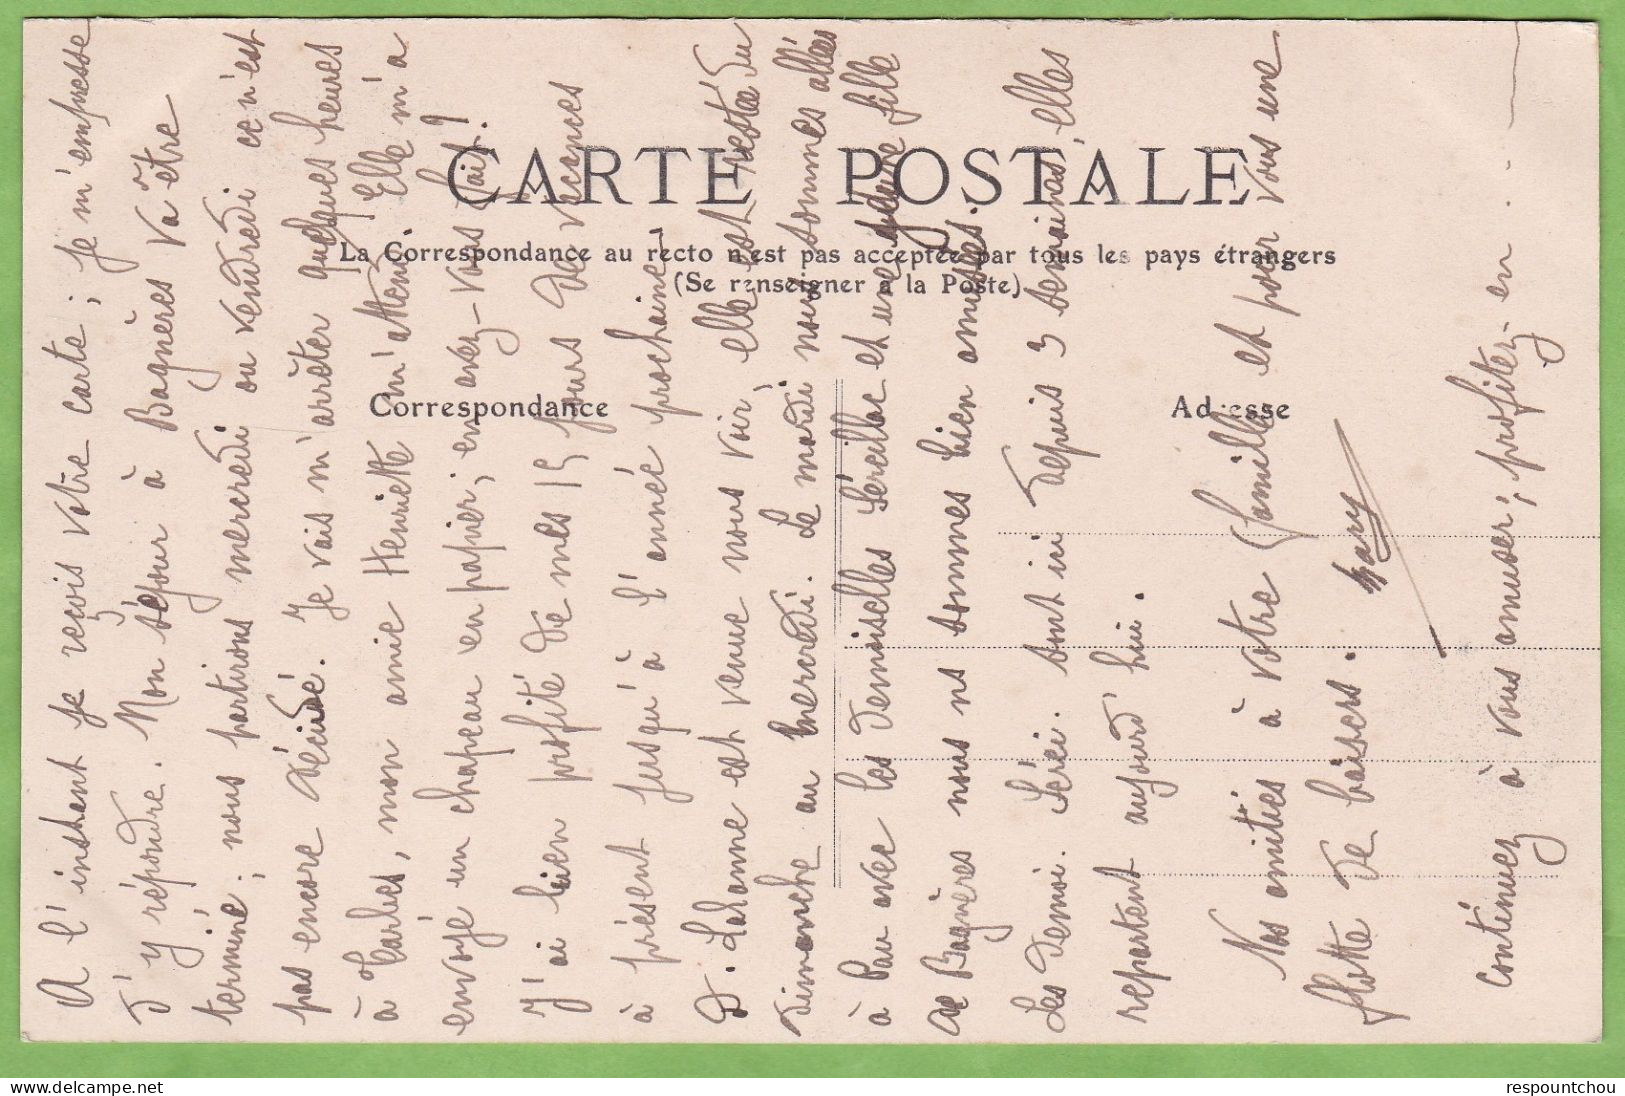 CARTE POSTALE
La Correspondance au recto n'est pas acceptée par tous les pays étrangers
(Se renseigner à la Poste)
Correspondance
Adresse
A l'instant je reçois votre carte ; je m'empresse
d'y répondre. Mon séjour à Bagnères va être
terminé ; nous partirons mercredi ou vendredi ce n'est
pas encore décidé. Je vais m'arrêter quelques heures
à Tarbes, mon amie Henriette m'attend. Elle m'a
envoyé un chapeau en papier ; en avez-vous fait ?
J'ai bien profité de mes 15 jours de vacances
à présent jusqu'à l'anné prochaine !
D. Lalanne est venue nous voir elle est restée du
dimanche au mercredi. Le mardi nous sommes allées
à Pau avec les Demoiselles et une jeune fille
de Bagnères nous ns sommes bien amusées.
Les Demoi. sont ici depuis 3 semaines elles
repartent aujourd'hui.
Nos amitiés à votre famille et pour vous une
flotte de baisers.
continuez à vous amuser ; profitez-en...
respountchou
www.delcampe.net